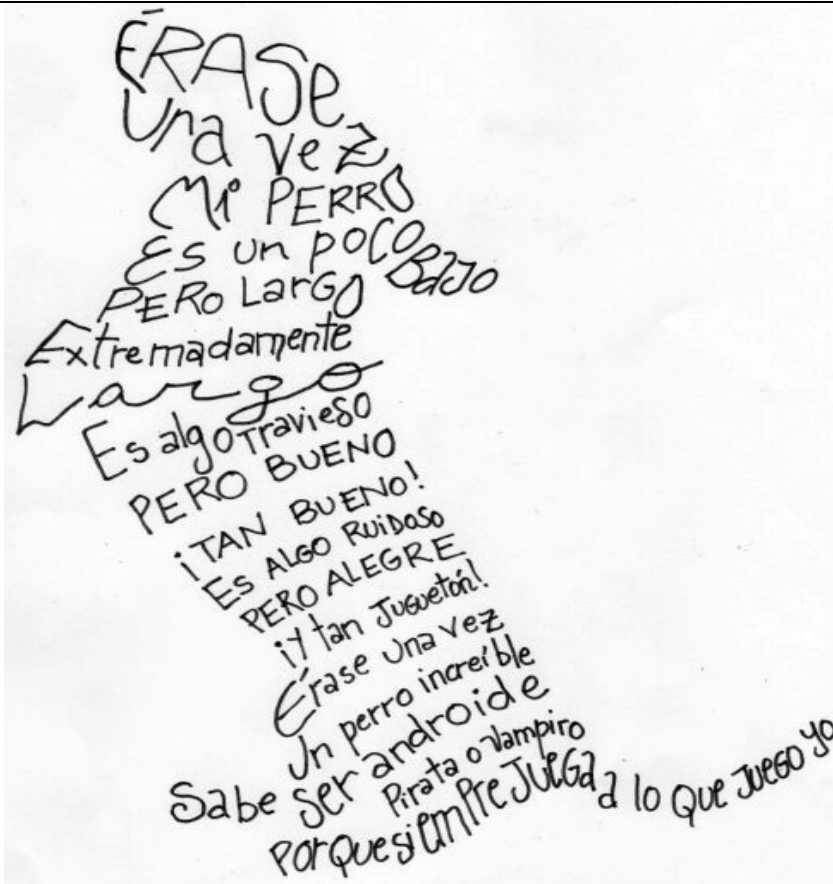 ÉRASE
Una vez
Mi PERRO
Es un poco BaJo
PERO LarGO
Extremadamente
Largo
Es algo Travieso
PERO BUENO
¡TAN BUENO!
ES ALGO RUiDoSo
PERO ALEGRE
¡Y tan JuGuetón!
Érase Una vez
Un perro increíble
Sabe ser androide
Pirata o Vampiro
PorQue siEmPre JUEGa a lo Que JuEGO yo